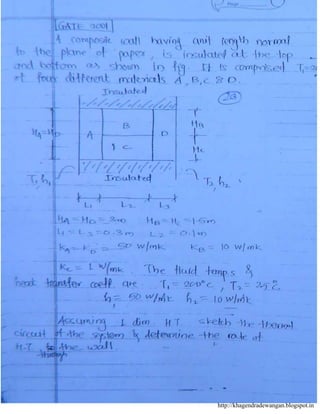 Page
GATE 2001
A composite wall having unit length normal
to the plane of paper, is insulated at the top
and bottom as shown in fig. It is comprised
of four different materials A, B, C & D.
Insulated
23
A B C D
HA=HD
HB
HC
T1 h1
Insulated
T2 h2
L1 L2 L3
HA = HD = 3m HB = HC = 1.5m
L1 = L3 = 0.3m L2 = 0.1m
KA = KD = 50 W/mk KB = 10 W/mk
KC = 1 W/mk. The fluid temps &
heat transfer coeff are T1 = 200°C, T2 = 25°C
h1 = 50 W/mk h2 = 10 W/mk
Assuming 1 dim H.T sketch the thermal
circuit of the system & determine the rate of
H.T through the wall.
http://khagendradewangan.blogspot.in